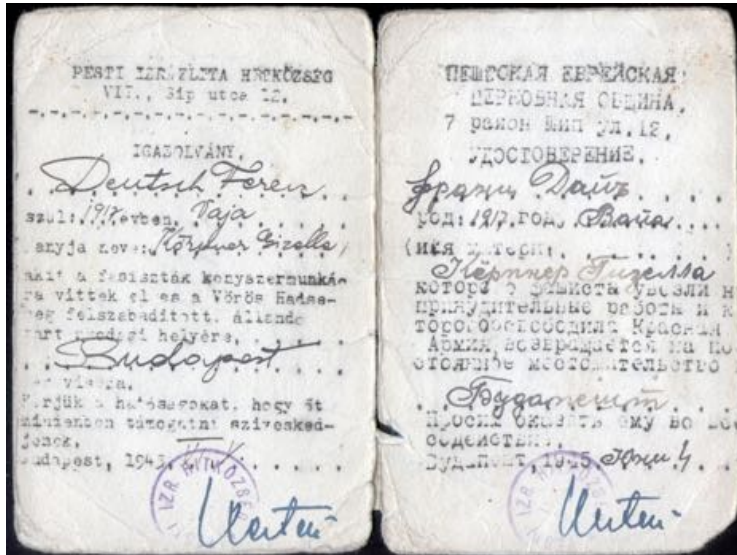 PESTI IZRAELITA HITKÖZSÉG
VII., Síp utca 12.
IGAZOLVÁNY.
Deutsch Ferenc
szül: 1917. évben. Vaja
anyja neve: Gizella
akit a fasiszták kényszermunká-
ra vittek el és a Vörös Hadse-
reg felszabadított, állandó
tart
Budapest
vissza.
Kérjük a hatóságokat, hogy őt
mindenben támogatni szívesked-
jenek.
Budapest, 1945.
ПЕШТСКАЯ ЕВРЕЙСКАЯ
ЦЕРКОВНАЯ ОБЩИНА.
7 район Шип ул. 12.
УДОСТОВЕРЕНИЕ.
Франц Дайч
род: 1917. год. Вайа
(имя матери:
Гизелла
которого фашиста увезли н
принудительные работы и к
торого освободила Красная
Армия, возвращается на по
стоянное местожительство
Будапешт
Просим оказать ему во
содействие.
Будапешт, 1945.